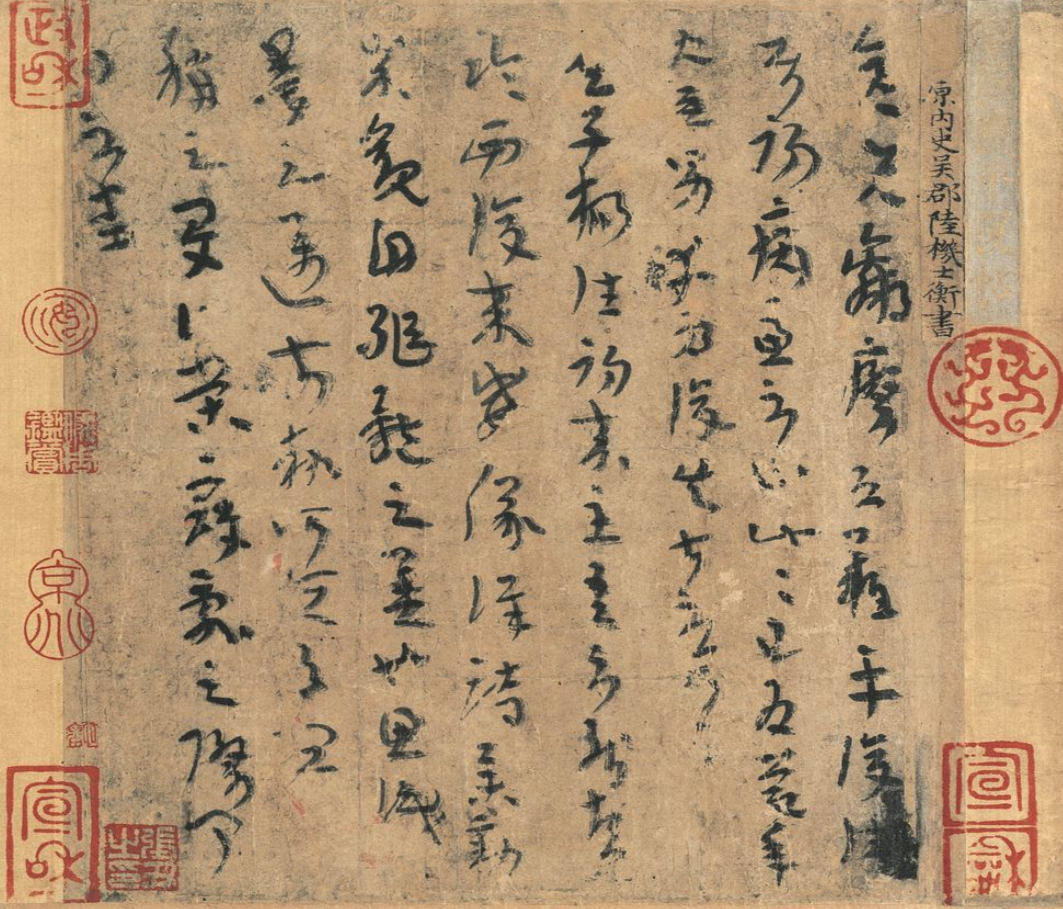 晉內史吳郡陸機士衡書
彥先羸瘵恐難平復往
屬初病慮不止此此已為慶承
使唯男幸為復失前憂耳
吳子楊往初來主吾不能盡
臨西復來威儀詳跱舉動
成觀自軀體之美也思識
量之邁前執所恆有宜
稱之夏伯榮寇亂之際聞
問不悉
宣和
政和
宣和
張丑之印